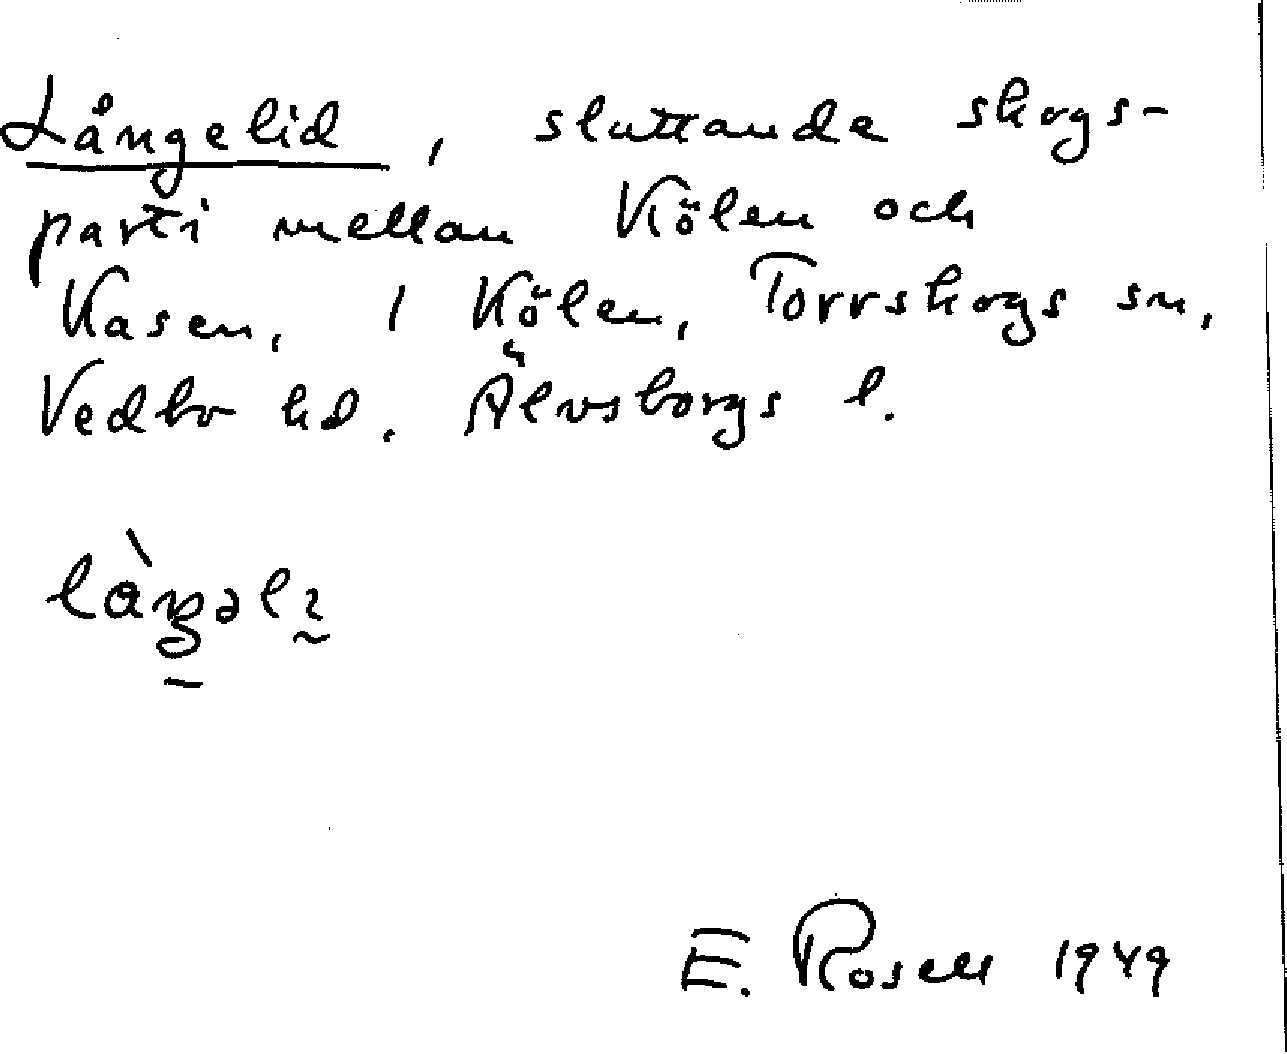 Långelid, sluttande skogs-
parti mellan Kölen och
Kasen, i Kölen, Torrskogs sn,
Vedbo hd. Älvsborgs l.
E. Rosell 1949